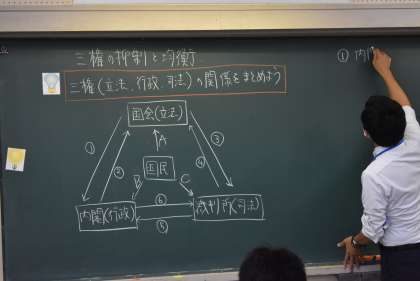 三権の抑制と均衡
① 内
三権(立法、行政、司法)の関係をまとめよう
国会(立法)
① ② A ④ ③
国民
B C
内閣(行政) ⑤ ⑥ 裁判所(司法)